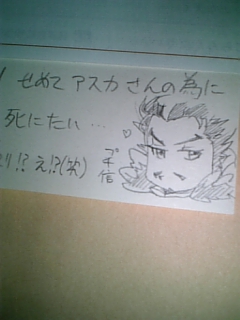 せめてアスカさんの為に
死にたい…
!? え!?(笑)